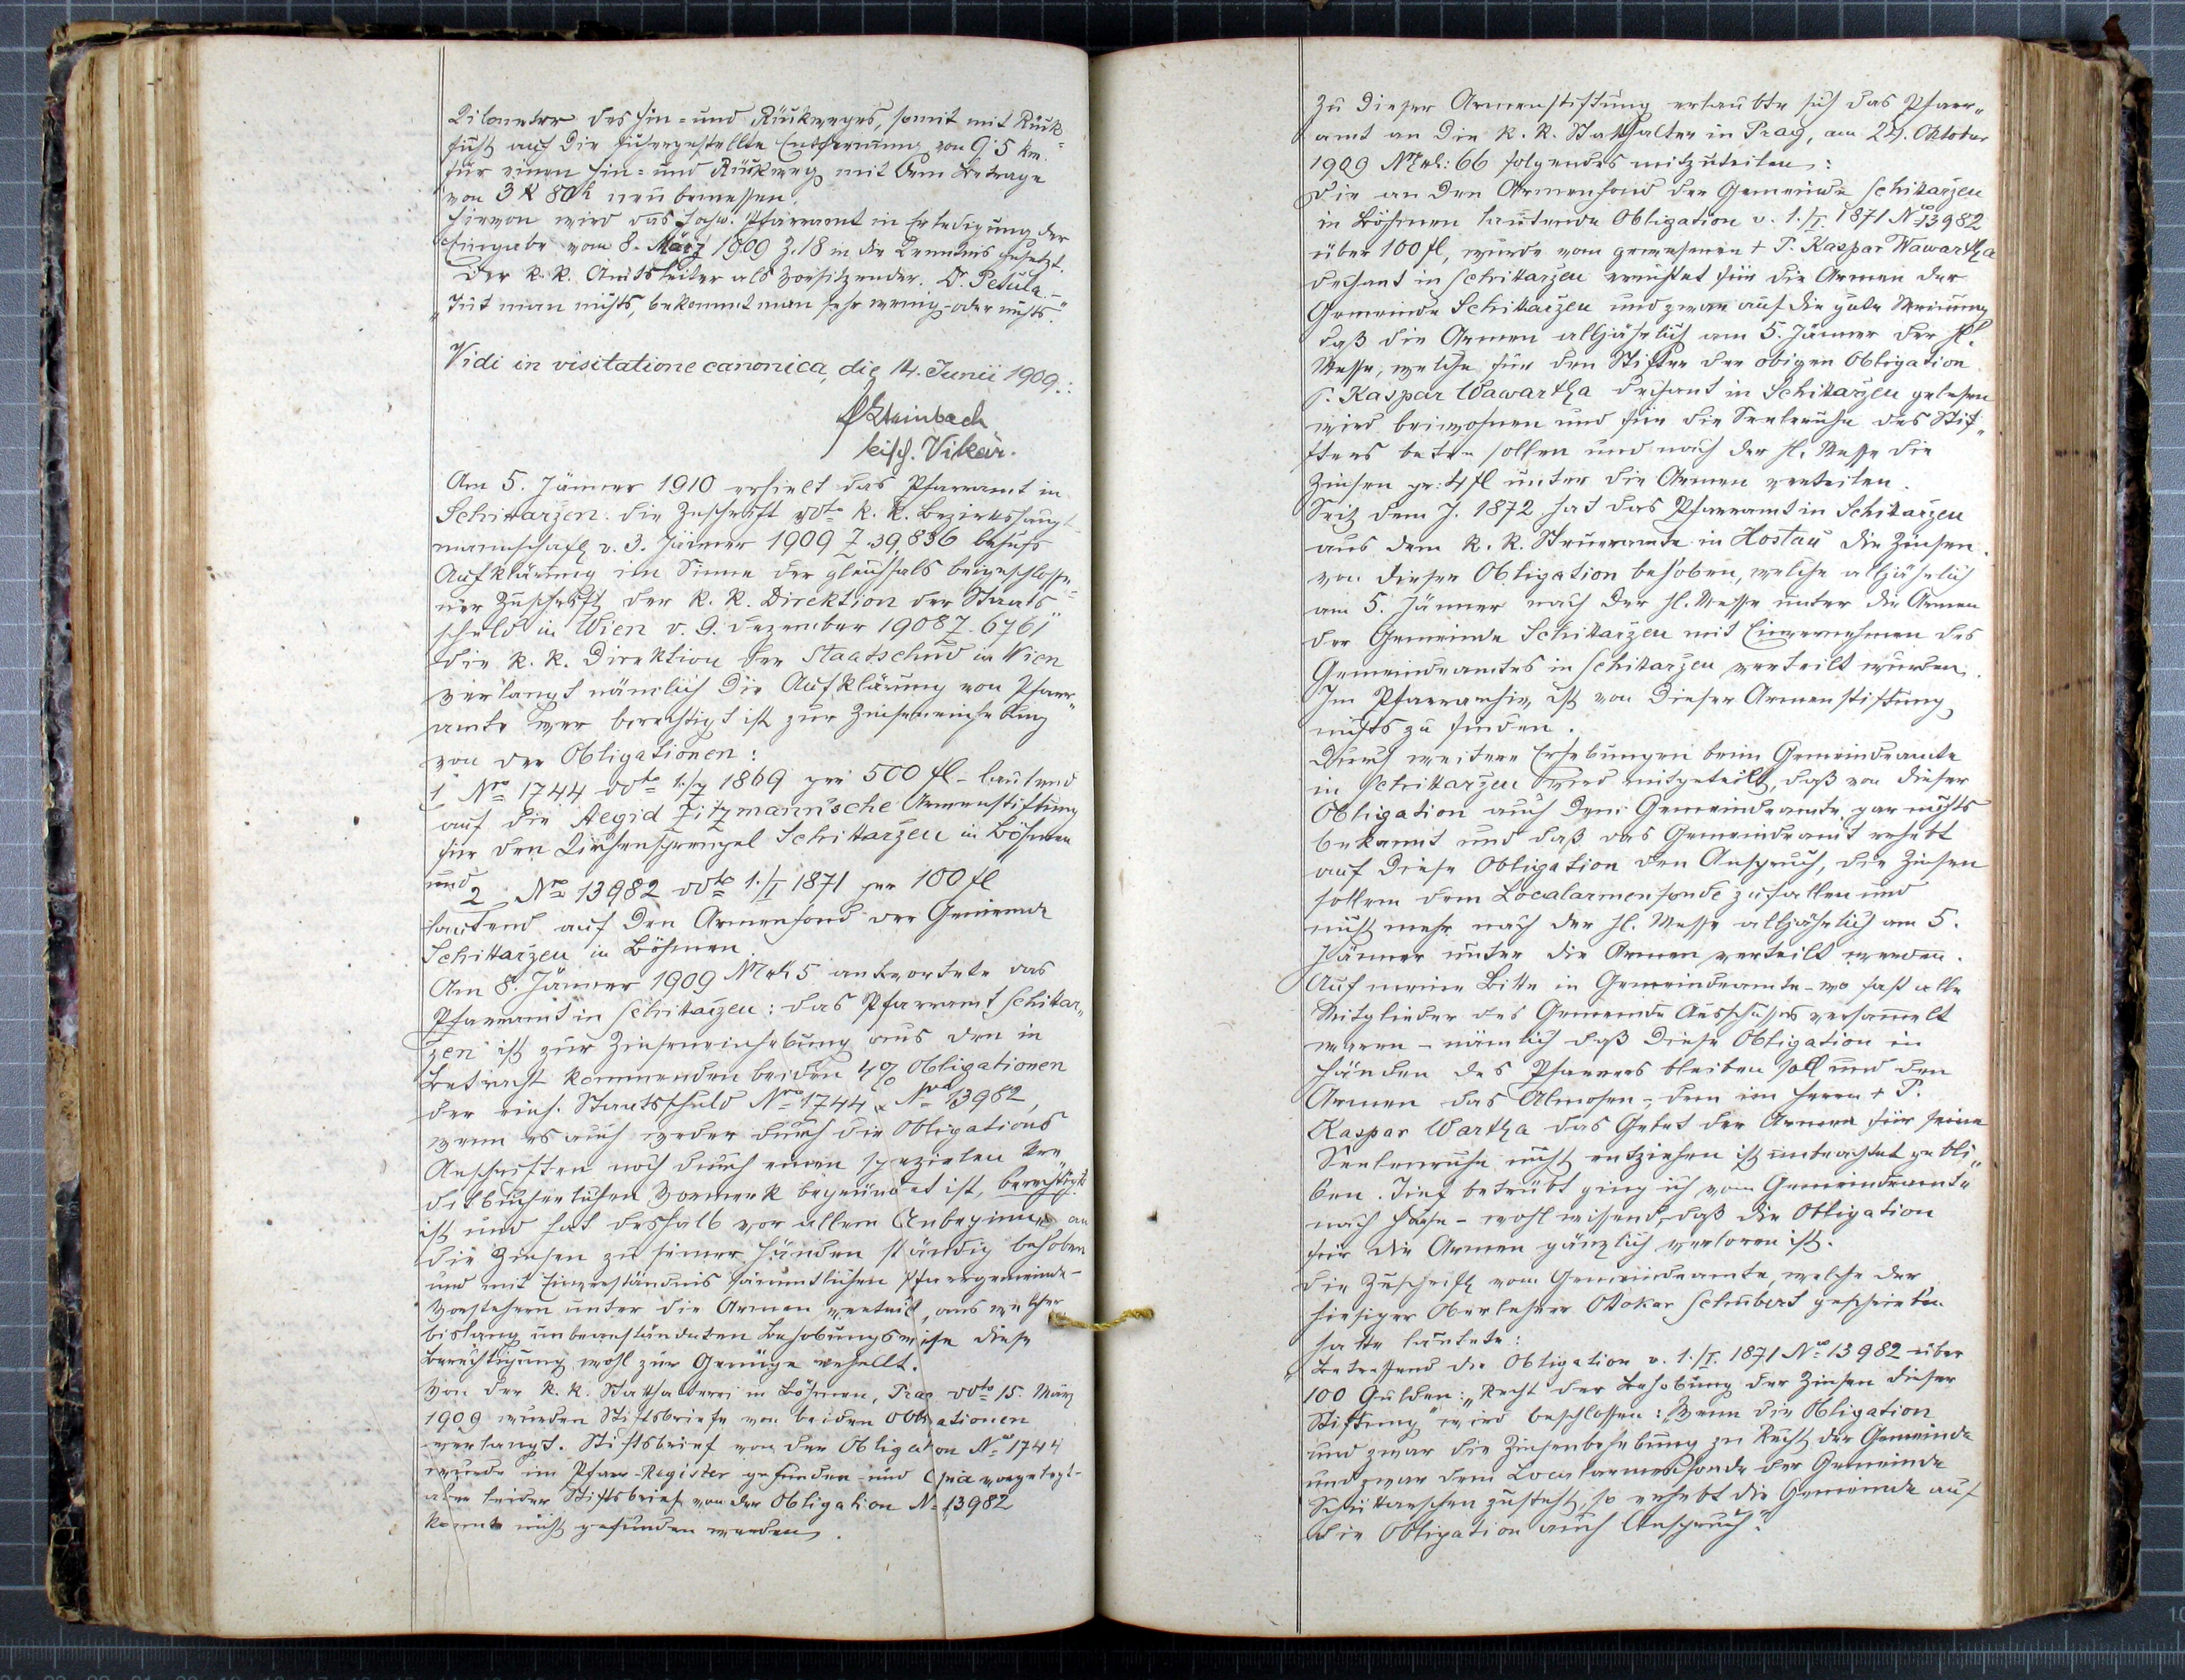 Kilometer des Hin- und Rückweges, somit mit Rück-
sicht auf die sichergestellte Entfernung von 9·5 km.
für einen Hin- und Rückweg mit dem Betrage
von 3 K 80 h neu bemessen.
Hievon wird das hochw. Pfarramt in Erledigung der
Eingabe vom 8. März 1909 Z. 18 in die Kenntnis gesetzt.
Der k. k. Amtsleiter als Vorsitzender. Dr. Pesula.-
„Tut man nichts, bekommt man sehr wenig - oder nichts."
Vidi in visitatione canonica, die 14. Junii 1909.:
Steinbach
bisch. Vikär.
Am 5. Jänner 1910 erhielt das Pfarramt in
Schittarzen die Zuschrift ddto k. k. Bezirkshaupt-
mannschaft v. 3. Jänner 1909 Z. 39,836 behufs
Aufklärung im Sinne der gleichfals beigeschlosse-
ner Zuschrift der k. k. Direktion der Staats-
schuld in Wien v. 9. Dezember 1908 Z. 6761
Die k. k. Direktion der Staatschuld in Wien
verlangt nämlich die Aufklärung von Pfarr„
amte wer berechtigt ist zur Zinseneinhebung
von der Obligationen:
1 Nro 1744 ddto 1./7 1869 per 500 fl - lautend
auf die Aegid Zitzmann'sche Armenstiftung
für den Kirchensprengel Schittarzen in Böhmen
und
2 Nro 13982 ddto 1./I 1871 per 100 fl
lautend auf den Armenfond der Gemeinde
Schittarzen in Böhmen.
Am 8. Jänner 1909 Nexh 5 antwortete das
Pfarramt in Schittarzen: das Pfarramt Schittar„
zen ist zur Zinseneinhebung aus den in
Betracht kommenden beiden 4% Obligationen
der einh. Staatsschuld Nro 1744 u. Nro 13982,
wenn es auch weder durch die Obligations
Anschriften noch durch einen speziellen Kre„
ditbücherlichen Vormerk begründet ist, berechtigt
ist und hat deshalb vor allem Anbeginne an
die Zinsen zu seiner Händen ständig behoben
und mit Einverständnis sämmtlichen Pfarrgemeinde-
Vorstehern unter die Armen verteilt, aus welcher
bislang unbeanständeten Behobungsweise diese
Berechtigung wohl zur Genüge erhellt.
Von der k. k. Statthalterei in Böhmen, Prag ddto 15. März
1909 wurden Stiftsbriefe von beiden Obligationen
verlangt. Stiftsbrief von der Obligation No 1744
wurde im Pfarr-Register gefunden und Copia vorgelegt-
aber leider Stiftsbrief von der Obligation No 13982
konnte nicht gefunden werden.
Zu dieser Armenstiftung erlaubte sich das Pfarr„
amt an die k. k. Statthalter in Prag, am 24. Oktober
1909 Nexh: 66 folgendes mitzuteilen:
Die an den Armenfond der Gemeinde Schittarzen
in Böhmen lautende Obligation v. 1./I. 1871 No 13982
über 100 fl, wurde vom gewesenen + P. Kaspar Wawartha
Dechant in Schittarzen errichtet für die Armen der
Gemeinde Schittarzen und zwar auf die gute Meinung
daß die Armen alljährlich am 5. Jänner der hl.
Messe, welche für den Stifter der obigen Obligation
P. Kaspar Wawartha Dechant in Schittarzen gelesen
wird beiwohnen und für die Seelenruhe des Stif„
ters beten sollen und nach der hl. Messe die
Zinsen pr: 4 fl unter die Armen verteilen.
Seit dem J. 1872 hat das Pfarramt in Schittarzen
aus dem k. k. Steueramte in Hostau die Zinsen
von dieser Obligation behoben, welche alljährlich
am 5. Jänner nach der hl. Messe unter die Armen
der Gemeinde Schittarzen mit Einvernehmen des
Gemeindeamtes in Schittarzen verteilt wurden.
Im Pfarrarchiv ist von dieser Armenstiftung
nichts zu finden.
Durch weitere Erhebungen beim Gemeindeamte
in Schittarzen wird mitgeteilt, daß von dieser
Obligation auch dem Gemeindeamte gar nichts
bekannt und daß das Gemeindeamt erhebt
auf diese Obligation den Anspruch, die Zinsen
sollen dem Localarmenfonde zufallen und
nicht mehr nach der hl. Messe alljährlich am 5.
Jänner unter die Armen verteilt werden.
Auf meine Bitte in Gemeindeamte - wo fast alle
Mitglieder des Gemeinde Ausschusses versammelt
waren - nämlich daß diese Obligation in
Händen des Pfarrers bleiben soll und den
Armen das Almosen -, dem im Herrn + P.
Kaspar Wartha das Gebet der Armen für seine
Seelenruhe nicht entziehen ist unbeachtet gebli„
ben. Tief betrübt ging ich vom Gemeindeamte
nach Hause - wohl wissend, daß die Obligation
für die Armen gänzlich verloren ist.
Die Zuschrift vom Gemeindeamte, welche der
hiesiger Oberlehrer Ottokar Schubert geschrieben
hatte lautete:
Betreffend die Obligation v. 1./I. 1871 No 13982 über
100 Gulden: „Recht der Behebung der Zinsen dieser
Stiftung" wird beschlossen: „Wenn die Obligation
und zwar die Zinsenbehebung zu Recht der Gemeinde
und zwar dem Localarmenfonde der Gemeinde
Schüttarschen zusteht, so erhebt die Gemeinde auf
die Obligation auch Anspruch."